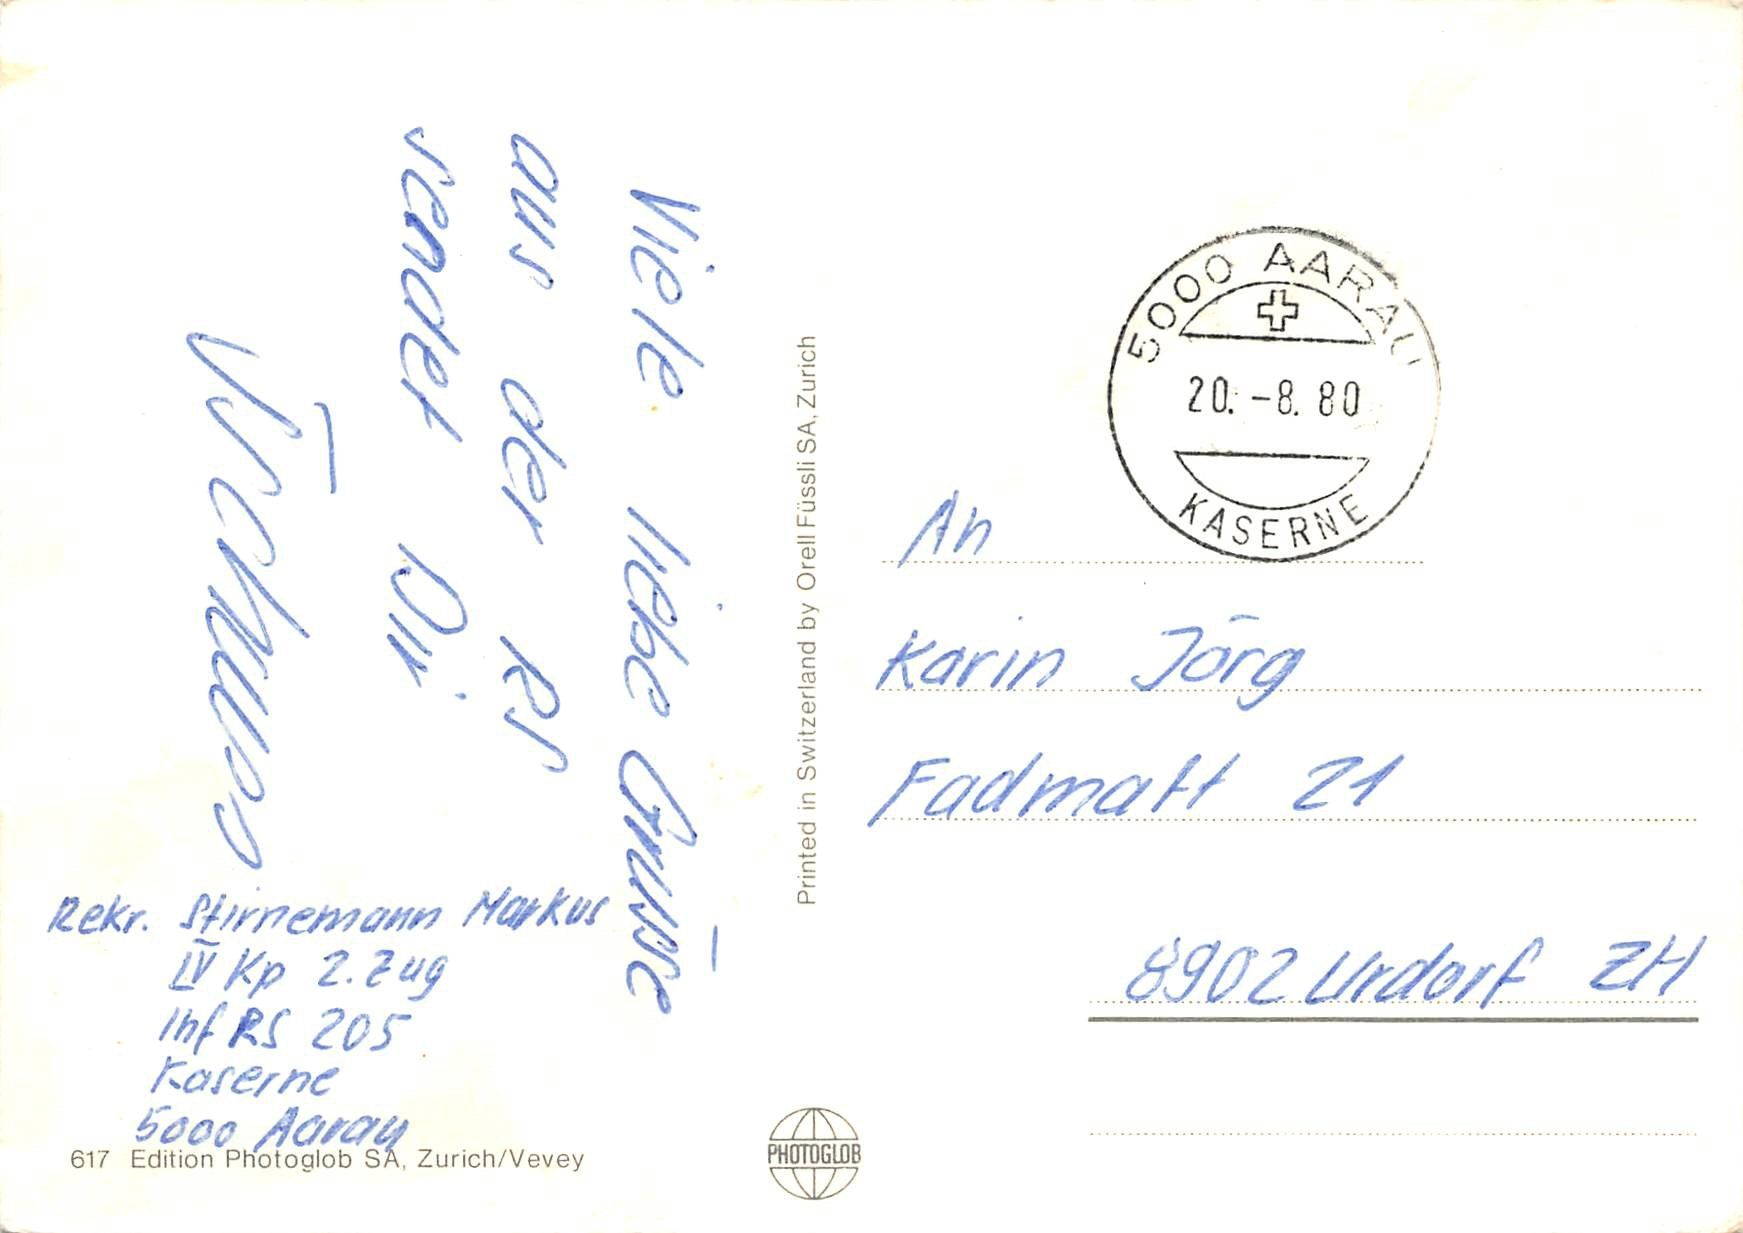 Viele liebe Grüsse
aus der RS
sendet Dir
Rekr. Stirnemann Markus
IV Kp 2. Zug
Inf RS 205
Kaserne
5000 Aarau
617 Edition Photoglob SA, Zurich/Vevey
Printed in Switzerland by Orell Füssli SA, Zurich
PHOTOGLOB
5000 AARAU
20. -8. 80
KASERNE
An
Karin Jörg
Fadmatt 21
8902 Urdorf ZH